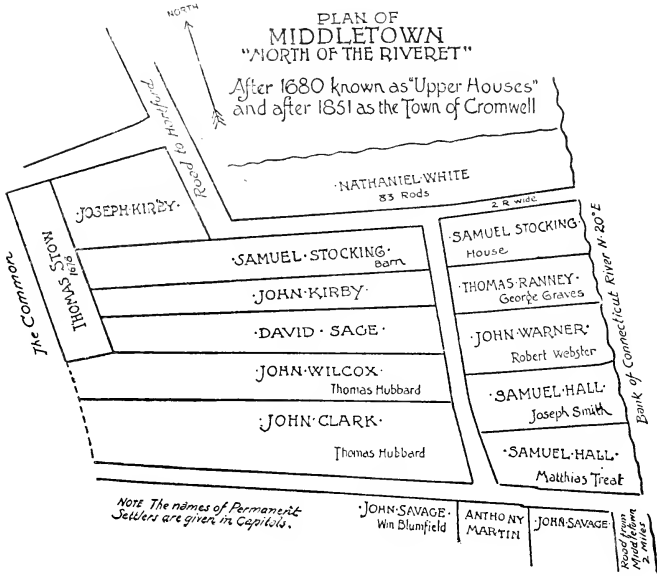 NORTH
PLAN OF
MIDDLETOWN
"NORTH OF THE RIVERET"
After 1680 known as "Upper Houses"
and after 1851 as the Town of Cromwell
Road to Hartford
·NATHANIEL·WHITE
83 Rods
2 R wide
·JOSEPH·KIRBY·
The Common
THOMAS STOW
1670
·SAMUEL·STOCKING·
Barn
·JOHN·KIRBY·
·DAVID·SAGE·
·JOHN·WILCOX·
Thomas Hubbard
·JOHN·CLARK·
Thomas Hubbard
·SAMUEL STOCKING·
House
·THOMAS·RANNEY·
George Graves
·JOHN·WARNER·
Robert Webster
·SAMUEL·HALL·
Joseph Smith
·SAMUEL·HALL·
Matthias Treat
Bank of Connecticut River N·20°E
NOTE The names of Permanent
Settlers are given in Capitols.
·JOHN·SAVAGE·
Win Blumfield
ANTHONY
MARTIN
·JOHN·SAVAGE·
Road from
Middletown
2 Miles